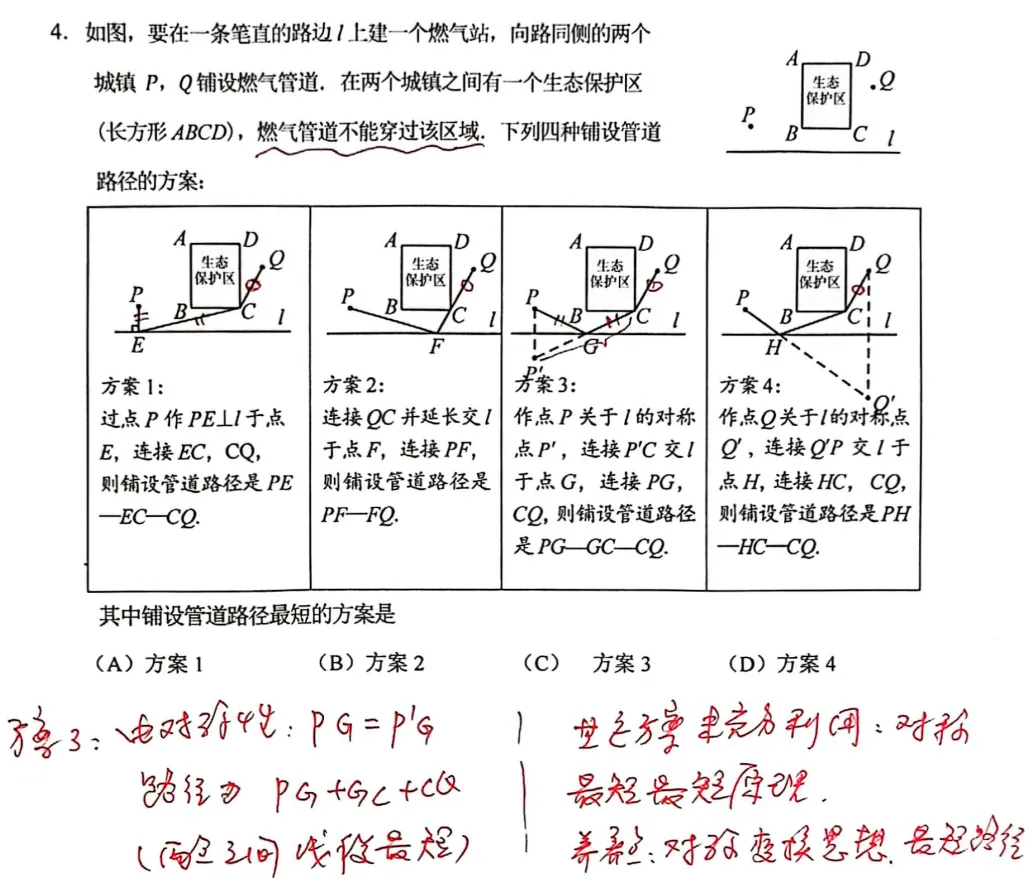 4. 如图，要在一条笔直的路边l上建一个燃气站，向路同侧的两个
城镇 P，Q铺设燃气管道．在两个城镇之间有一个生态保护区
(长方形ABCD)，燃气管道不能穿过该区域．下列四种铺设管道
路径的方案：
A D
生态
保护区
Q
P
B C l
A D
生态
保护区
Q
P
B C l
E
方案1：
过点P作PE⊥l于点
E，连接EC，CQ，
则铺设管道路径是PE
—EC—CQ.
A D
生态
保护区
Q
P
B C l
F
方案2：
连接QC并延长交l
于点F，连接PF，
则铺设管道路径是
PF—FQ.
A D
生态
保护区
Q
P
B C l
G
P'
方案3：
作点P关于l的对称
点P'，连接P'C交l
于点G，连接PG，
CQ，则铺设管道路径
是PG—GC—CQ.
A D
生态
保护区
Q
P
B C l
H
Q'
方案4：
作点Q关于l的对称点
Q'，连接Q'P交l于
点H，连接HC，CQ，
则铺设管道路径是PH
—HC—CQ.
其中铺设管道路径最短的方案是
（A）方案1 （B）方案2 （C） 方案3 （D）方案4
方案3：由对称性：PG=P'G
路径为 PG+GC+CQ
(两点之间 线段最短)
其它方案未充分利用：对称
最短最短原理．
养：对称变换思想．最短路径